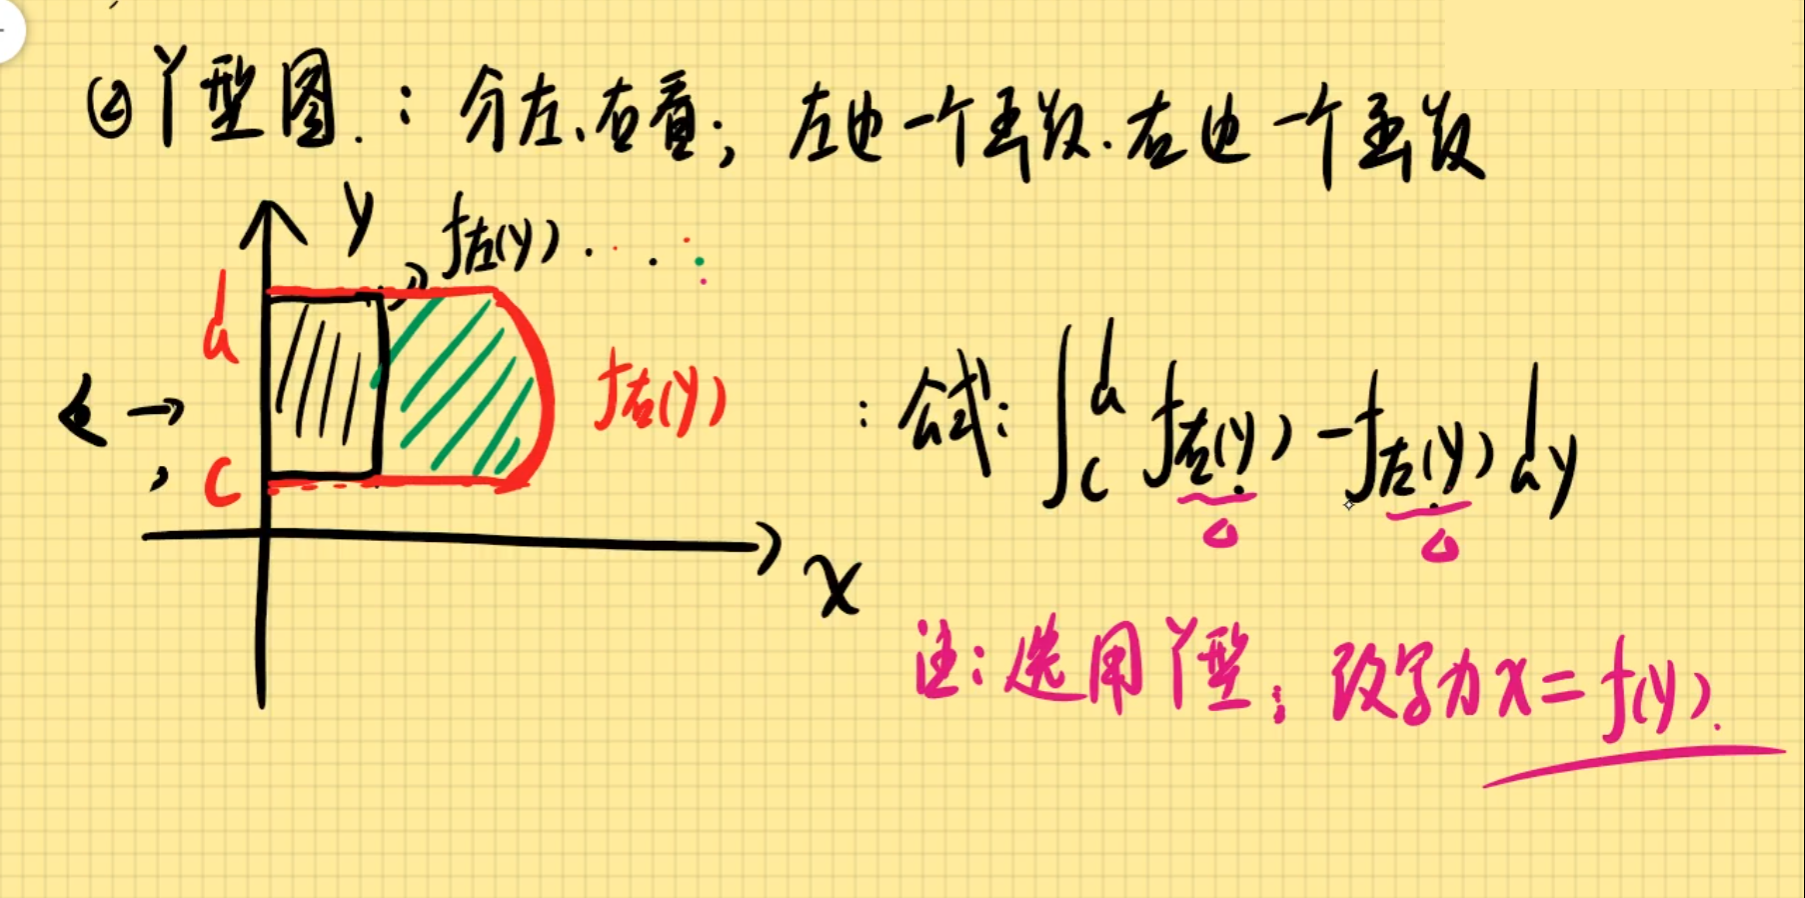 ②Y型图.：分左、右看；左边一个函数.右边一个函数
y
f左(y)
d
f右(y)
c
x
：公式：∫_c^d f右(y) - f左(y) dy
注：选用Y型；改写为x=f(y).